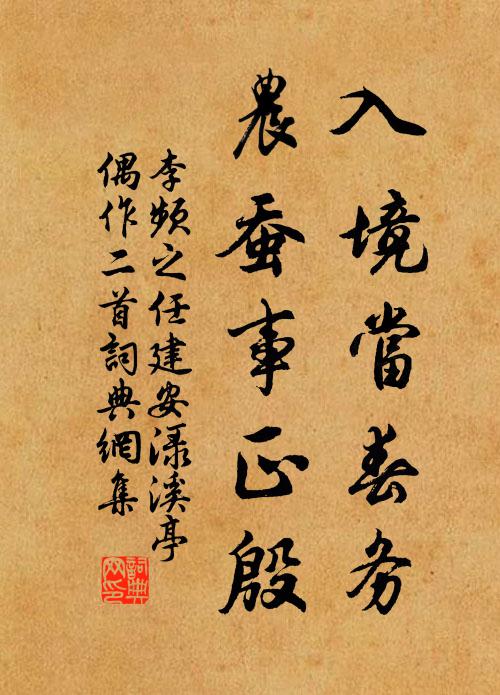 入境當春务
農蚕事正殷
李频之任建安渌溪亭
偶作二首詞典網集
詞典网印